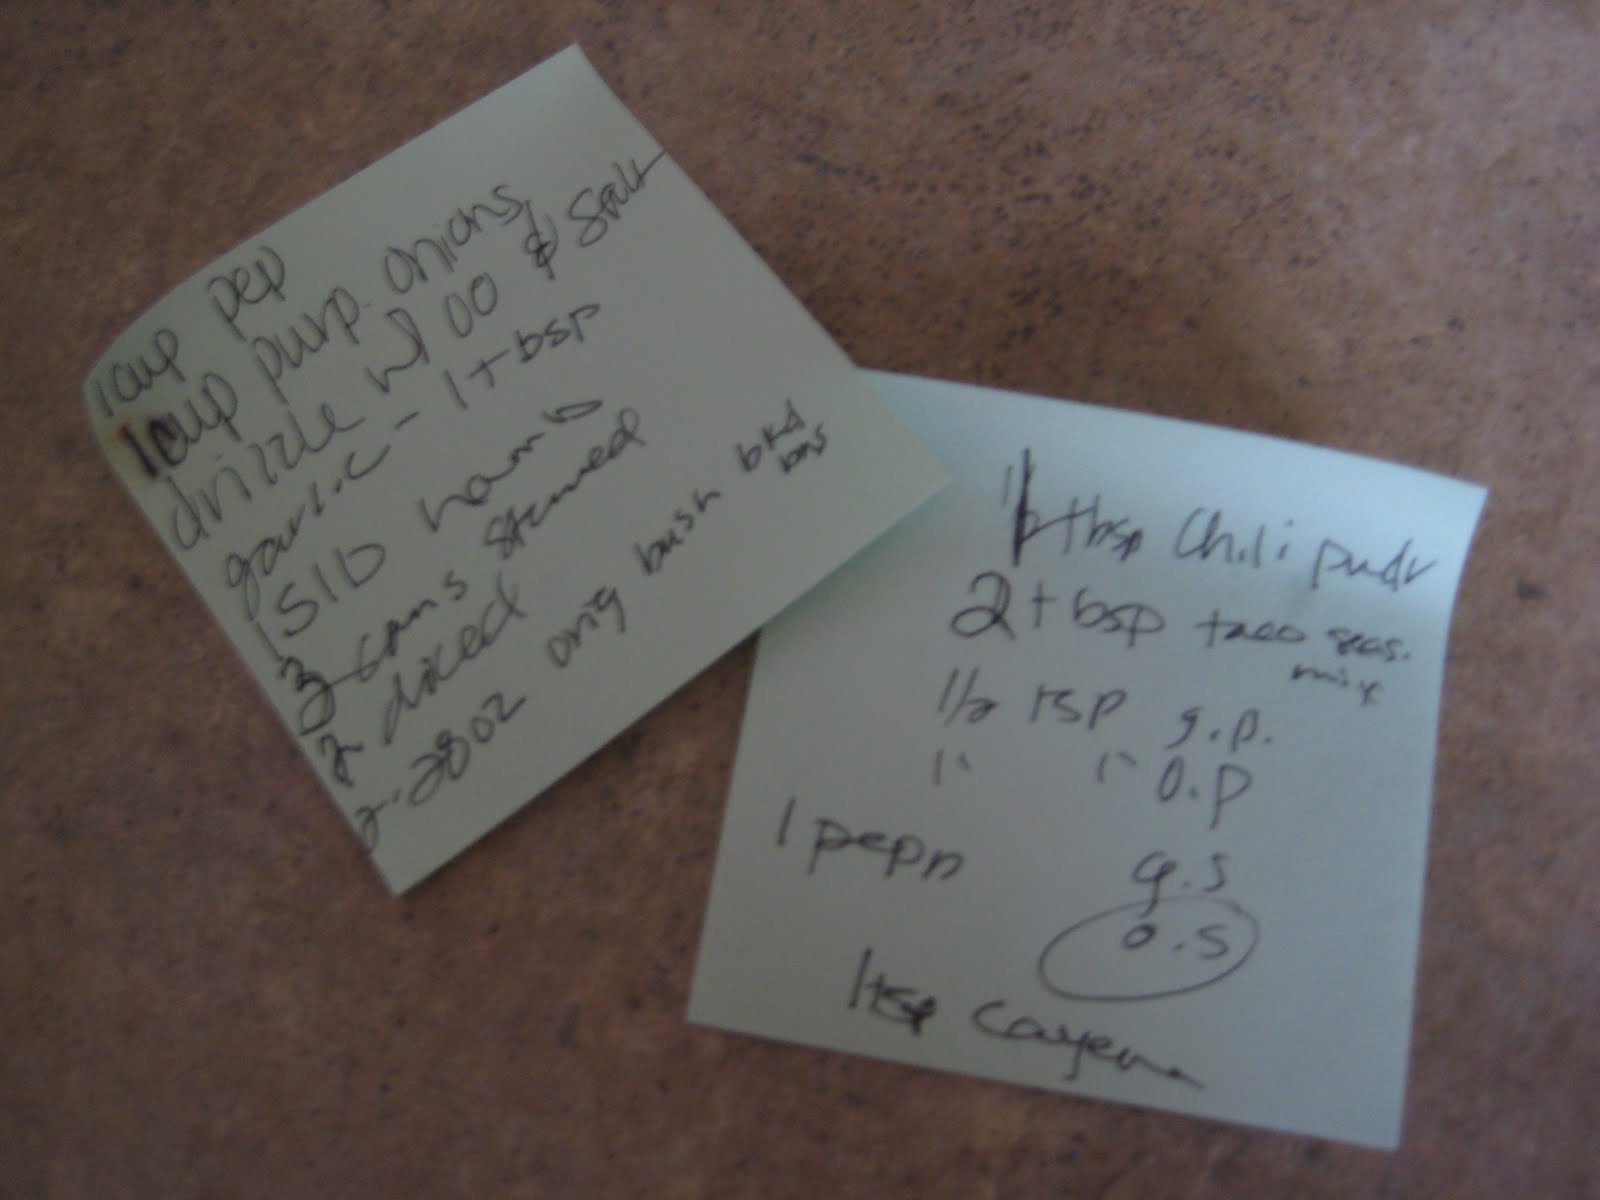 1 cup pep
1 cup purp. onions
drizzle w/ OO & salt
garlic - 1 tbsp
5 lb hamb
cans stewed
2 diced
2 - 28 oz orig bush bkd bns
tbsp Chili pwdr
2 tbsp taco seas.
mix
1/2 tsp g.p.
" " o.p
1 pepn g.s
o.s
1 tsp Cayenn